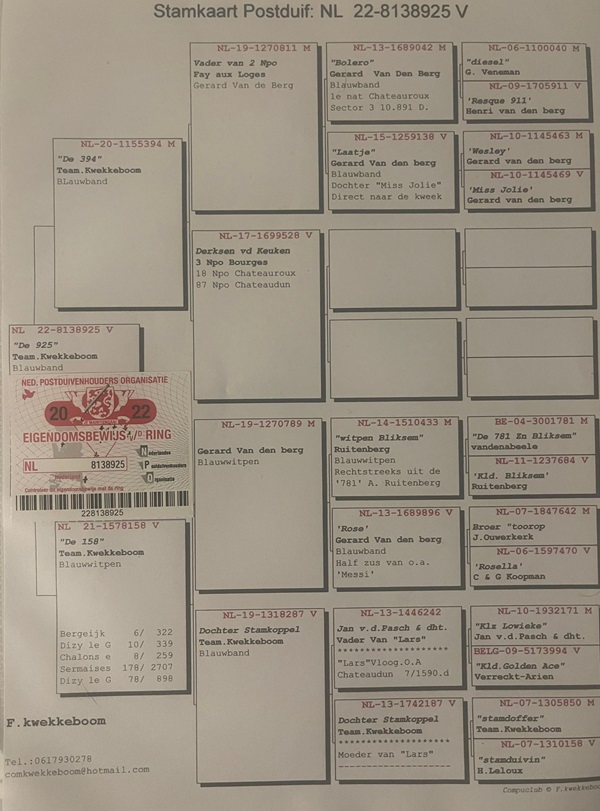 Stamkaart Postduif: NL 22-8138925 V
NL-20-1155394 M
"De 394"
Team.Kwekkeboom
BLauwband
NL 22-8138925 V
"De 925"
Team.Kwekkeboom
Blauwband
NED. POSTDUIVENHOUDERS ORGANISATIE
20 22
EIGENDOMSBEWIJS V/D RING
Nederlandse
NL 8138925
Postduivenhouders
Organisatie
228138925
NL 21-1578158 V
"De 158"
Team.Kwekkeboom
Blauwwitpen
Bergeijk 6/ 322
Dizy le G 10/ 339
Chalons e 8/ 259
Sermaises 178/ 2707
Dizy le G 78/ 898
F.kwekkeboom
Tel.:0617930278
comkwekkeboom@hotmail.com
NL-19-1270811 M
Vader van 2 Npo
Fay aux Loges
Gerard Van de Berg
NL-17-1699528 V
Derksen vd Keuken
3 Npo Bourges
18 Npo Chateauroux
87 Npo Chateaudun
NL-19-1270789 M
Gerard Van den berg
Blauwwitpen
NL-19-1318287 V
Dochter Stamkoppel
Team.Kwekkeboom
Blauwband
NL-13-1689042 M
"Bolero"
Gerard Van Den Berg
Blauwband
1e nat Chateauroux
Sector 3 10.891 D.
NL-15-1259138 V
"Laatje"
Gerard Van den berg
Blauwband
Dochter "Miss Jolie"
Direct naar de kweek
NL-14-1510433 M
"witpen Bliksem"
Ruitenberg
Blauwwitpen
Rechtstreeks uit de
'781' A. Ruitenberg
NL-13-1689896 V
'Rose'
Gerard Van den berg
Blauwband
Half zus van o.a.
'Messi'
NL-13-1446242
Jan v.d.Pasch & dht.
Vader Van "Lars"
********************
"Lars"Vloog.O.A
Chateaudun 7/1590.d
NL-13-1742187 V
Dochter Stamkoppel
Team.Kwekkeboom
********************
Moeder van "Lars"
--------------------
NL-06-1100040 M
"diesel"
G. Veneman
NL-09-1705911 V
'Rasque 911'
Henri van den berg
NL-10-1145463 M
'Wesley'
Gerard van den berg
NL-10-1145469 V
'Miss Jolie'
Gerard van den berg
BE-04-3001781 M
"De 781 Zn Bliksem"
vandenabeele
NL-11-1237684 V
'Kld. Bliksem'
Ruitenberg
NL-07-1847642 M
Broer "toorop
J.Ouwerkerk
NL-06-1597470 V
'Rosella'
C & G Koopman
NL-10-1932171 M
"Klz Lowieke"
Jan v.d.Pasch & dht.
BELG-09-5173994 V
"Kld.Golden Ace"
Verreckt-Arien
NL-07-1305850 M
"stamdoffer"
Team.Kwekkeboom
NL-07-1310158 V
"stamduivin"
H.Leloux
Compuclub © F.kwekkeboo